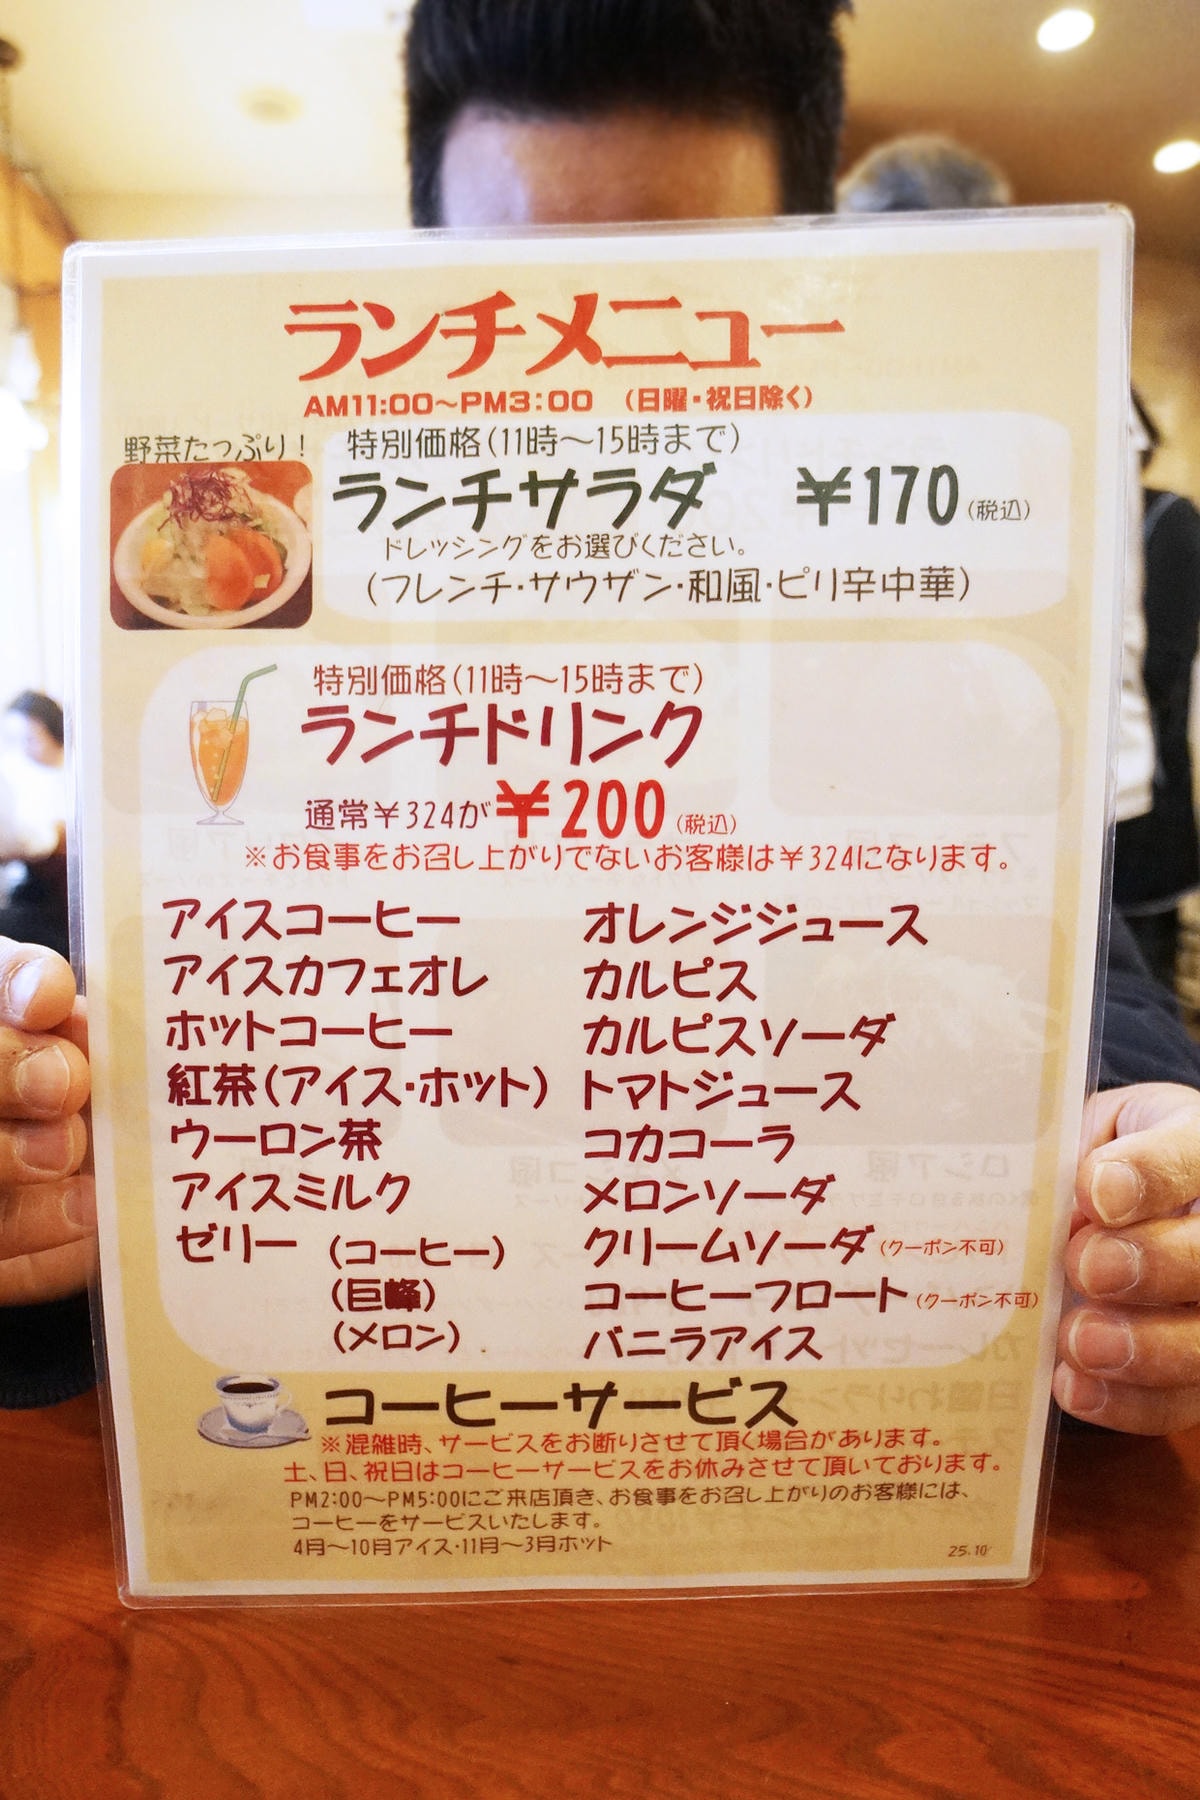 ランチメニュー
AM11:00〜PM3:00 (日曜・祝日除く)
野菜たっぷり!
特別価格(11時〜15時まで)
ランチサラダ ¥170(税込)
ドレッシングをお選びください。
(フレンチ・サウザン・和風・ピリ辛中華)
特別価格(11時〜15時まで)
ランチドリンク
通常¥324が¥200(税込)
※お食事をお召し上がりでないお客様は¥324になります。
アイスコーヒー
アイスカフェオレ
ホットコーヒー
紅茶(アイス・ホット)
ウーロン茶
アイスミルク
ゼリー (コーヒー)
(巨峰)
(メロン)
オレンジジュース
カルピス
カルピスソーダ
トマトジュース
コカコーラ
メロンソーダ
クリームソーダ(クーポン不可)
コーヒーフロート(クーポン不可)
バニラアイス
コーヒーサービス
※混雑時、サービスをお断りさせて頂く場合があります。
土、日、祝日はコーヒーサービスをお休みさせて頂いております。
PM2:00〜PM5:00にご来店頂き、お食事をお召し上がりのお客様には、
コーヒーをサービスいたします。
4月〜10月アイス・11月〜3月ホット
25.10